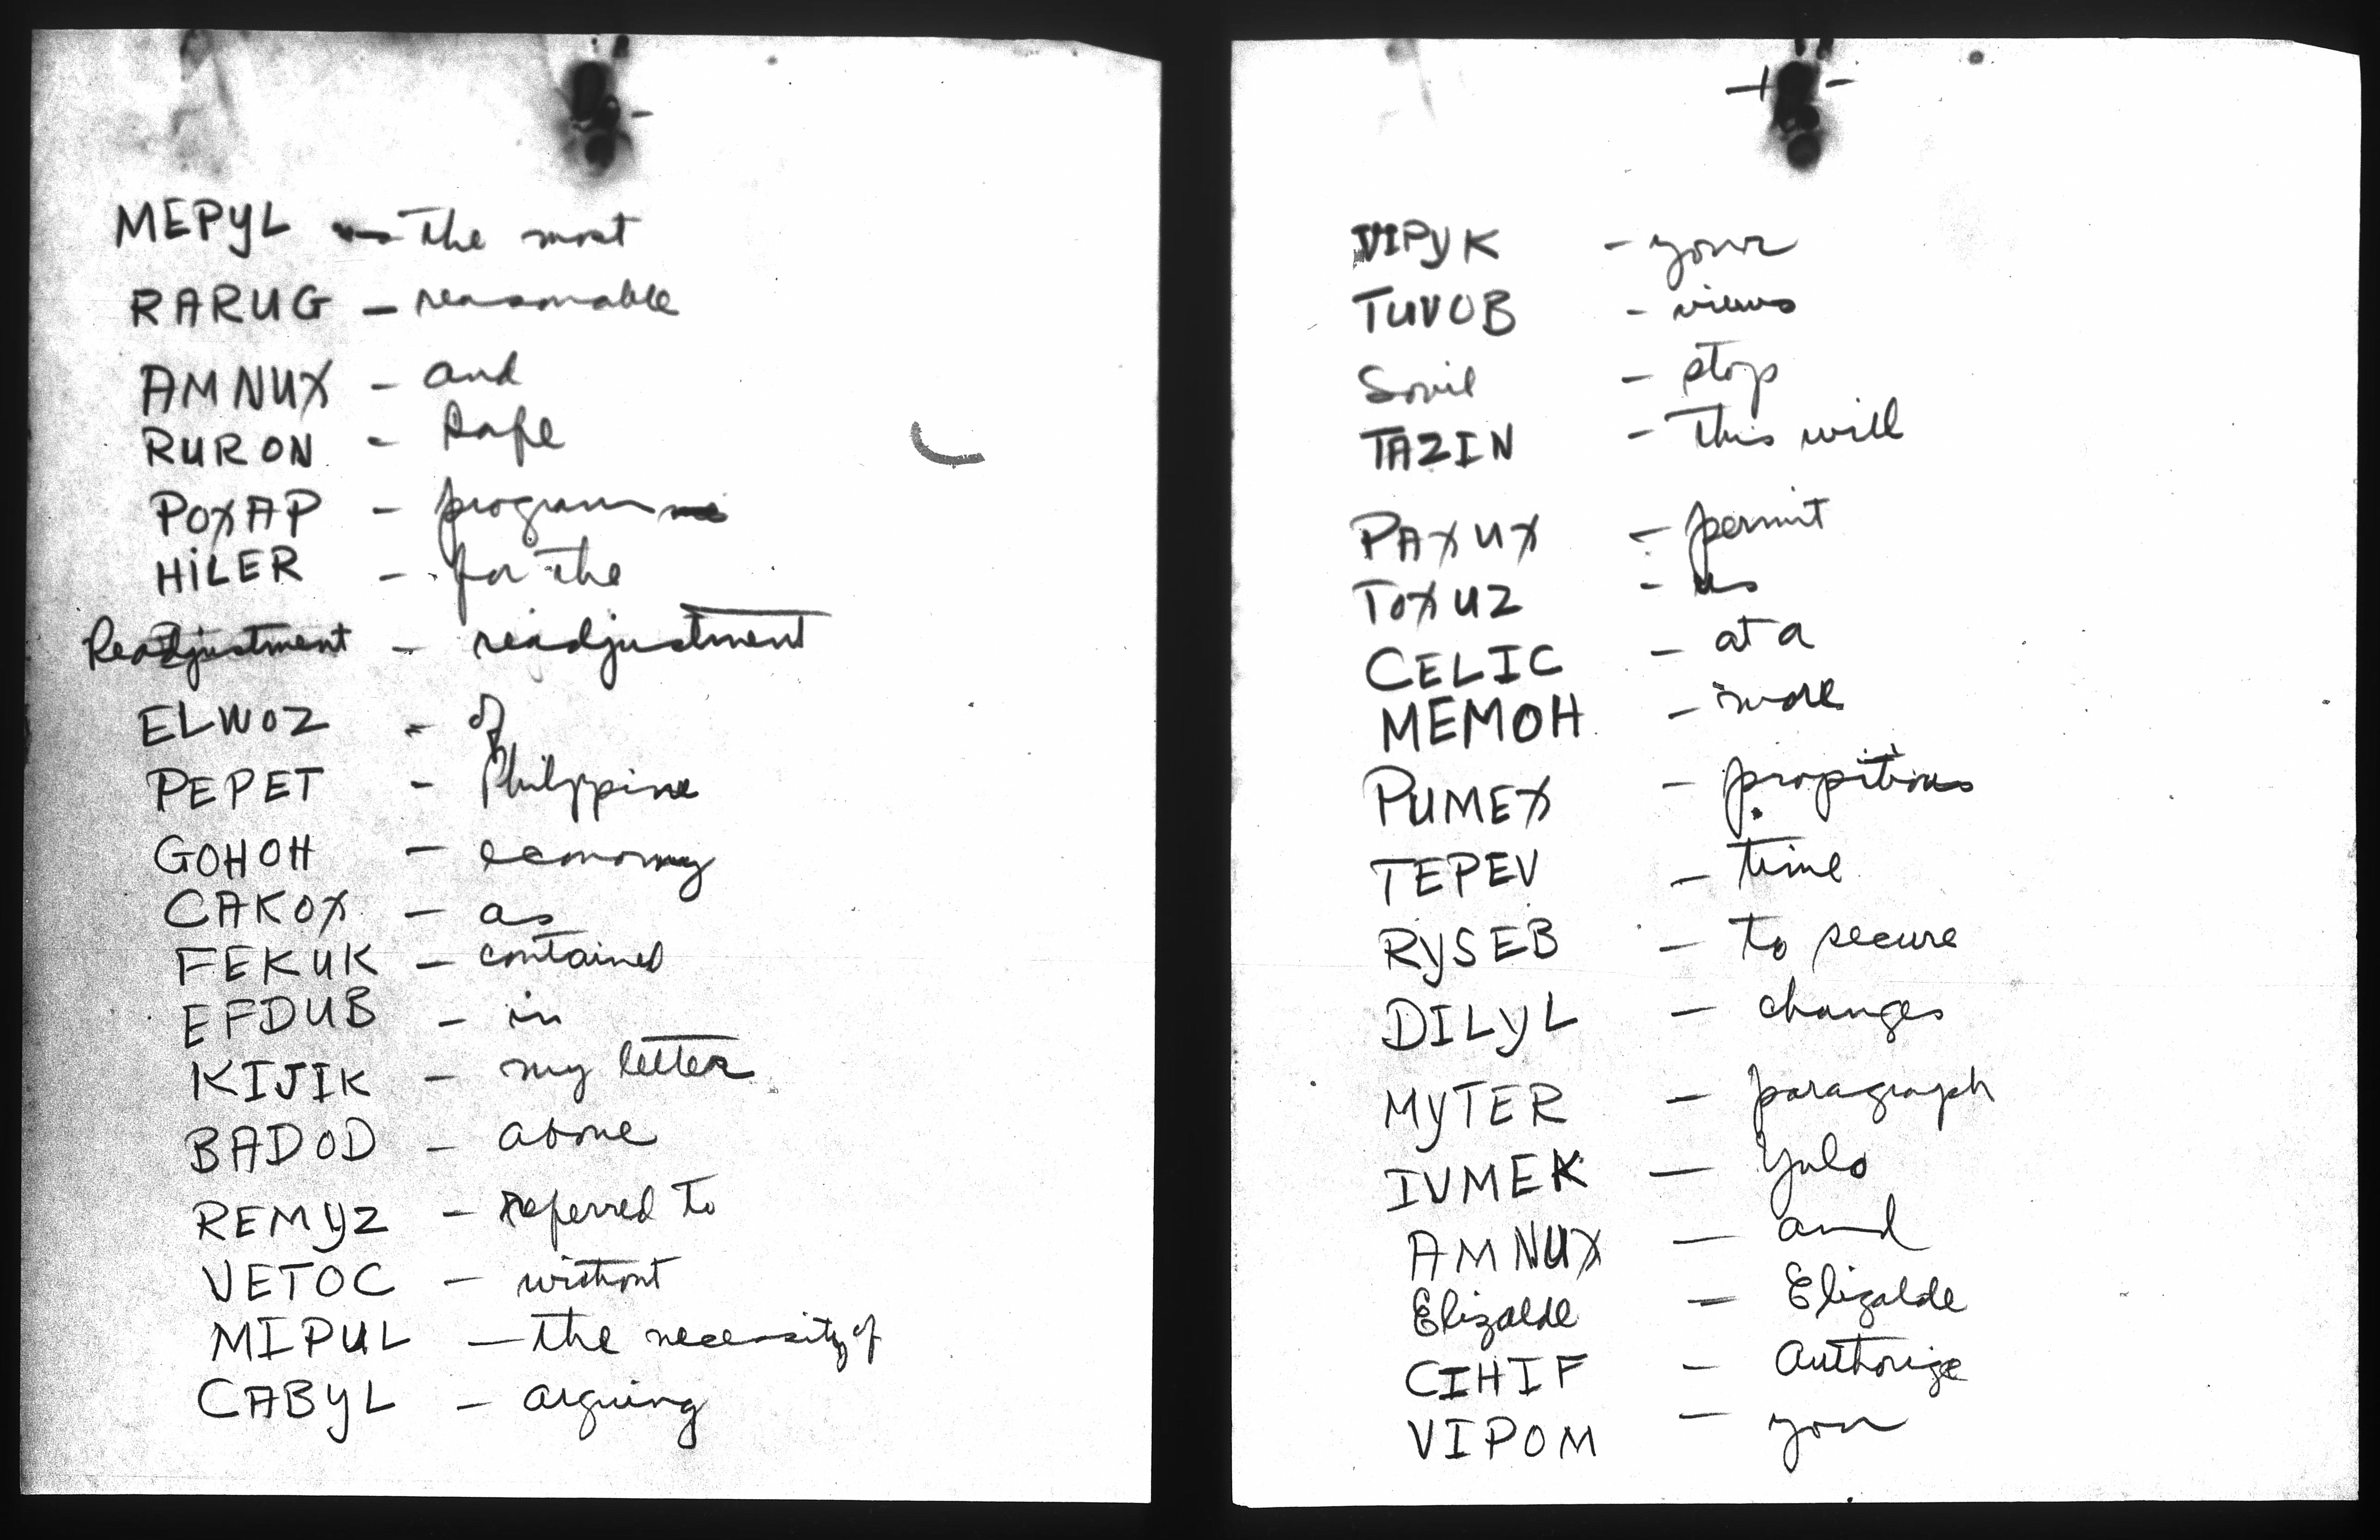 MEPYL - The most
RARUG - reasonable
AMNUX - and
RURON - safe
POXAP - program
HILER - for the
Readjustment - readjustment
ELWOZ - of
PEPET - Philippine
GOHOH - economy
CAKOX - as
FEKUK - contained
EFDUB - in
KIJIK - my letter
BADOD - above
REMYZ - referred to
VETOC - without
MIPUL - the necessity of
CABYL - arguing
VIPYK - your
TUVOB - views
Sovil - stop
TAZIN - This will
PAXUX - permit
TOXUZ - us
CELIC - at a
MEMOH - more
PUMEX - propitious
TEPEV - time
RYSEB - to secure
DILYL - changes
MYTER - paragraph
IVMEK - Yulo
AMNUX - and
Elizalde - Elizalde
CIHIF - Authorize
VIPOM - you